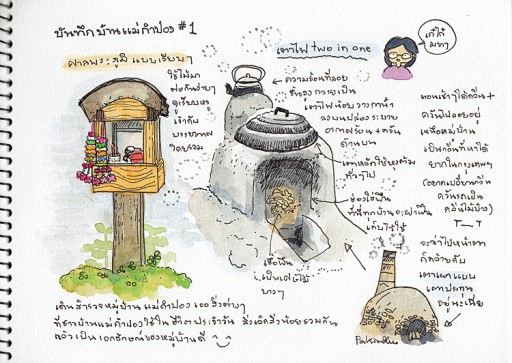 บันทึกบ้านแม่กำปอง #1
ศาลพระภูมิ แบบเรียบๆ
ใช้ไม้มา
ต่อกันง่ายๆ
ดูเรียบหรู
เข้ากับ
บรรยากาศ
โดยรวม
เตาไฟ two in one
เก๋ไก๋
มากๆ
ความร้อนที่ลอย
ขึ้นลง กลายเป็น
เตาไฟน้อย วางกาน้ำ
ลงบนปล่องระบาย
อากาศร้อน + ควัน
ด้านบน
เตาหลัก ใช้หุงต้ม
ทั่วๆไป
ช่องใส่ฟืน
ที่นี่ทุกบ้านจะผ่าฟืน
เก็บไว้ใช้
เชื้อฟืน
เป็นเศษไม้
บางๆ
ตอนเช้าได้ควัน +
ควันไฟลอยอยู่
เหนือหมู่บ้าน
เป็นกลิ่นที่หาได้
ยากในกรุงเทพฯ
(อยากเปลี่ยนควัน
ควันรถเป็น
ควันไม้บ้าง)
T_T
จะว่าไปหน้าตา
ก็คล้ายกับ
เตาเผาแบบ
เตาประทุน
อยู่นะเนี่ย
เดินสำรวจหมู่บ้าน แม่กำปอง เจอสิ่งต่างๆ
ที่ชาวบ้านแม่กำปองใช้ในชีวิตประจำวัน สิ่งเล็กสิ่งน้อยรวมกัน
แล้วเป็นเอกลักษณ์ของหมู่บ้านดี